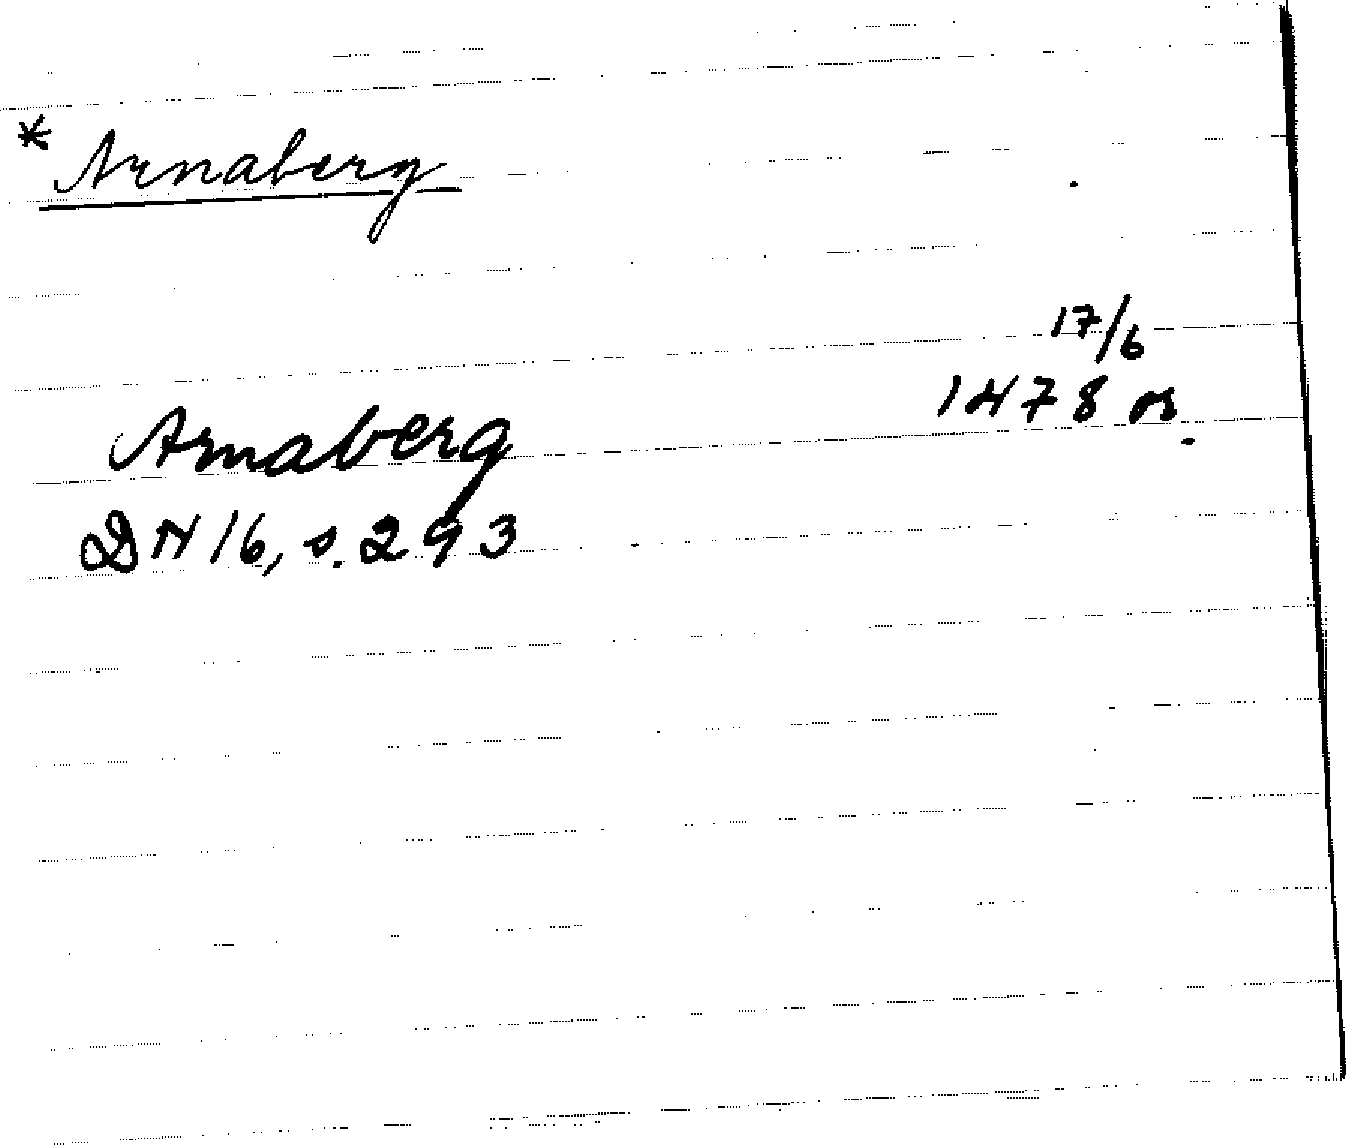 * Arnaberg
17/6
1478 os.
Arnaberg
DN 16, s. 293